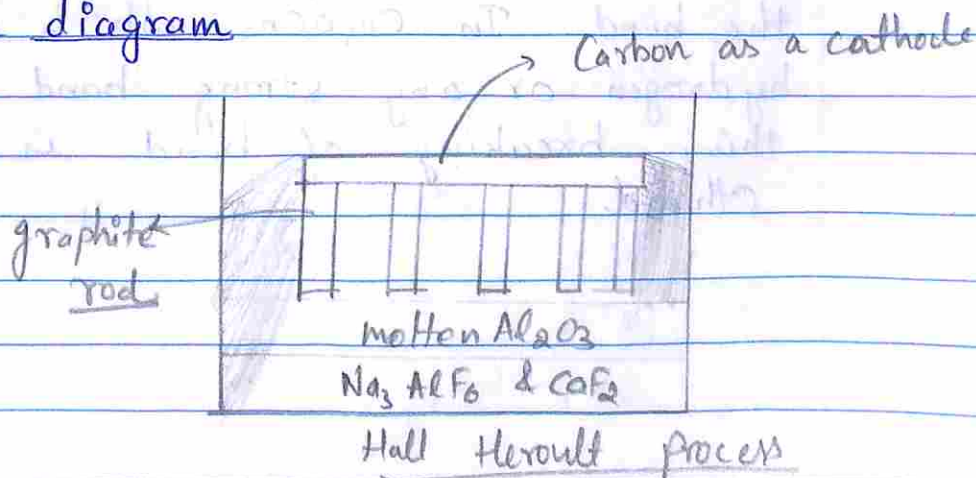 diagram
Carbon as a cathode
graphite
rod
molten Al₂O₃
Na₃ AlF₆ & CaF₂
Hall Heroult process